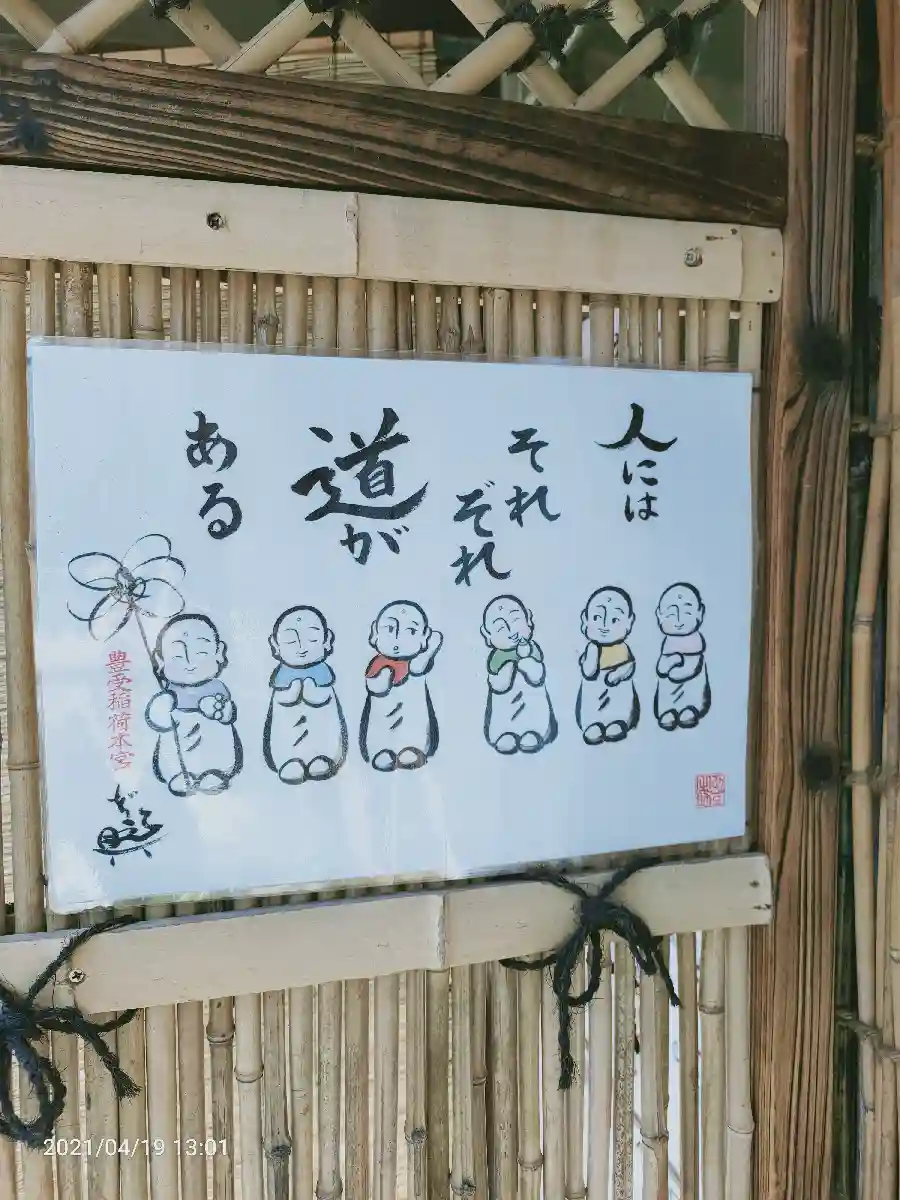 人には
それ
ぞれ
道が
ある
豊受稲荷本宮
2021/04/19 13:01